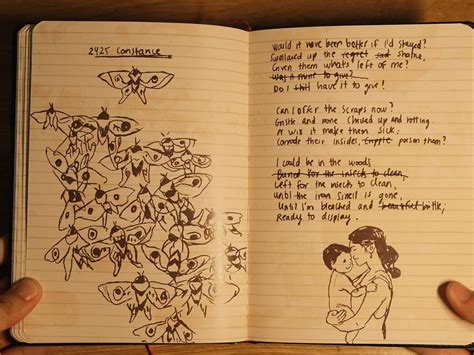 2425 Constance
Would it have been better if I'd stayed?
Swallowed up the regret sad shame,
Given them what's left of me?
Was it mine to give?
Do I still have it to give!
Can I offer the scraps now?
Gristle and bone chewed up and rotting.
Or will it make them sick;
Corrode their insides, poison them?
I could be in the woods
Buried for the insects to clean,
Left for the insects to clean,
Until the iron smell is gone,
Until I'm bleached and beautiful brittle,
Ready to display.